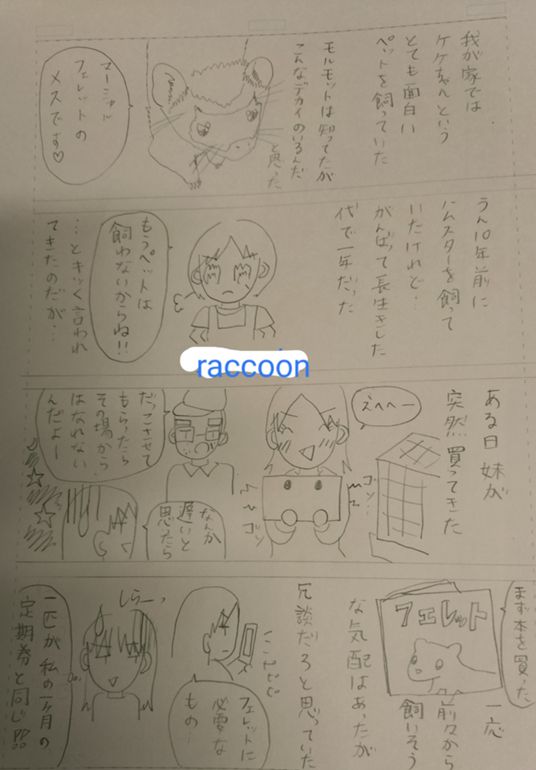 我が家では
ケケちゃんという
とても面白い
ペットを飼っていた
モルモットは知ってたが
こんなデカイのいるんだ
と思った
フェレットの
メスです♡
うん10年前に
ハムスターを飼って
いたけれど…
がんばって長生きした
代で一年だった
もうペットは
飼わないからね!!
…とキツく言われ
てきたのだが…
raccoon
ある日 妹が
突然買ってきた
えへへー
ゴソ…
ゴソ
なんか
遅いと
思ったら
だっこさせて
もらったら
その場から
はなれない
んだよー
まず本を買った
フェレット
一応
前々から
飼いそう
な気配はあったが
冗談だろと思っていた
フェレットに
必要な
もの…
しらーっ
一匹が私の一ヶ月の
定期券と同じ